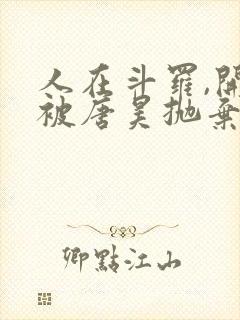 人在斗羅,開
被唐昊拋棄
卿點江山